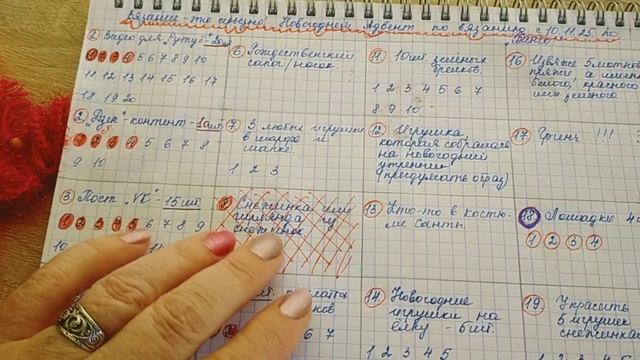 Вязание - это серьезно! Новогодний Адвент по вязанию с 10.11.25 по
① Видео для "Рутуб" 20шт
1 2 3 4 5 6 7 8 9 10
11 12 13 14 15 16 17
18 19 20
② "Дзен" - контент - 10шт
1 2 3 4 5 6 7 8
9 10
③ Пост "VK" - 15шт
1 2 3 4 5 6 7 8 9
10
⑥ Рождественский
сапог/носок
⑦ 3 любых игрушки
в шарфе и
шапке
1 2 3
Снежинка или
гирлянда из
снежинок
6 7
⑪ 10шт зеленых
брелков.
1 2 3 4 5 6 7
8 9 10
⑫ Игрушка,
которая собралась
на новогодний
утренник
(придумать образ)
⑬ Кто-то в костю-
ме Санты.
⑭ Новогодние
игрушки на
ёлку - 6шт.
1 2 3 4 5
⑯ Цвяже 5 мотков
пряжи, а именно
белого, красного
или зеленого
⑰ Гринч !!!
⑱ Лошадки 4
1 2 3 4
⑲ Украсить
5 игрушек
снежинка